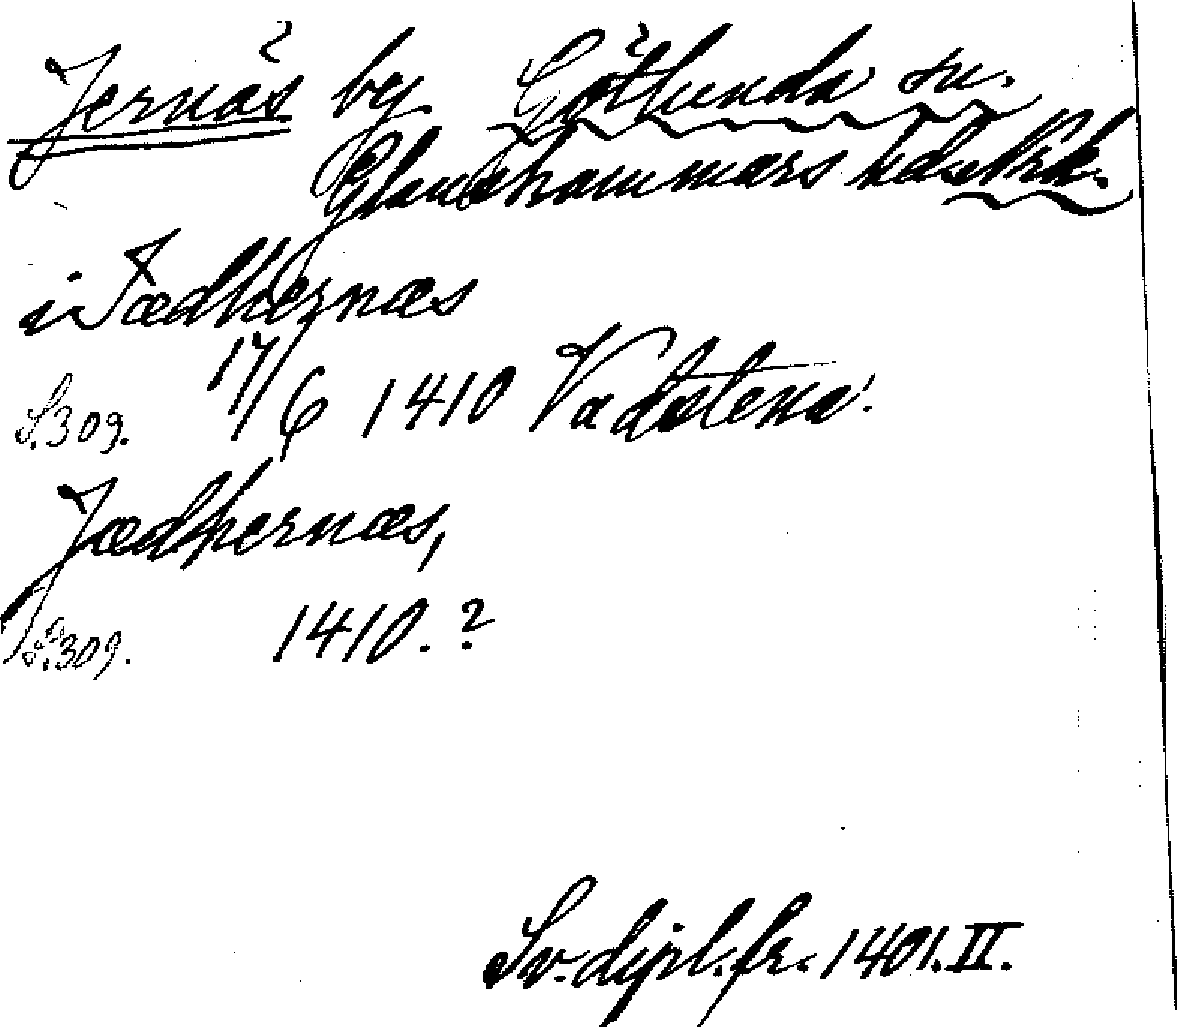 Jernäs by Götlunda sn.
Glanshammars hd. Nrk.
i Jædhernæs
S. 309. 17/6 1410 Vadstena.
Jædhernæs,
S. 309. 1410.?
Sv. dipl. fr. 1401. II.